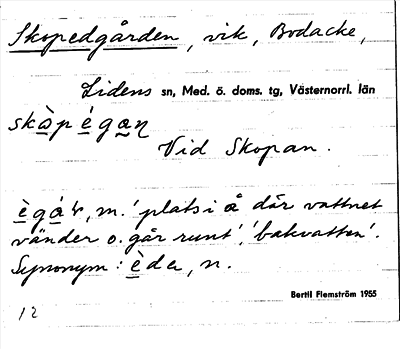 Skopedgården, vik, Bodacke,
Lidens sn, Med. ö. doms. tg, Västernorrl. län
skòpégaṇ
Vid Skopan.
ègá, m. 'plats i å där vattnet
vänder o. går runt', 'bakvatten'.
Synonym: èda, n.
Bertil Flemström 1955
12